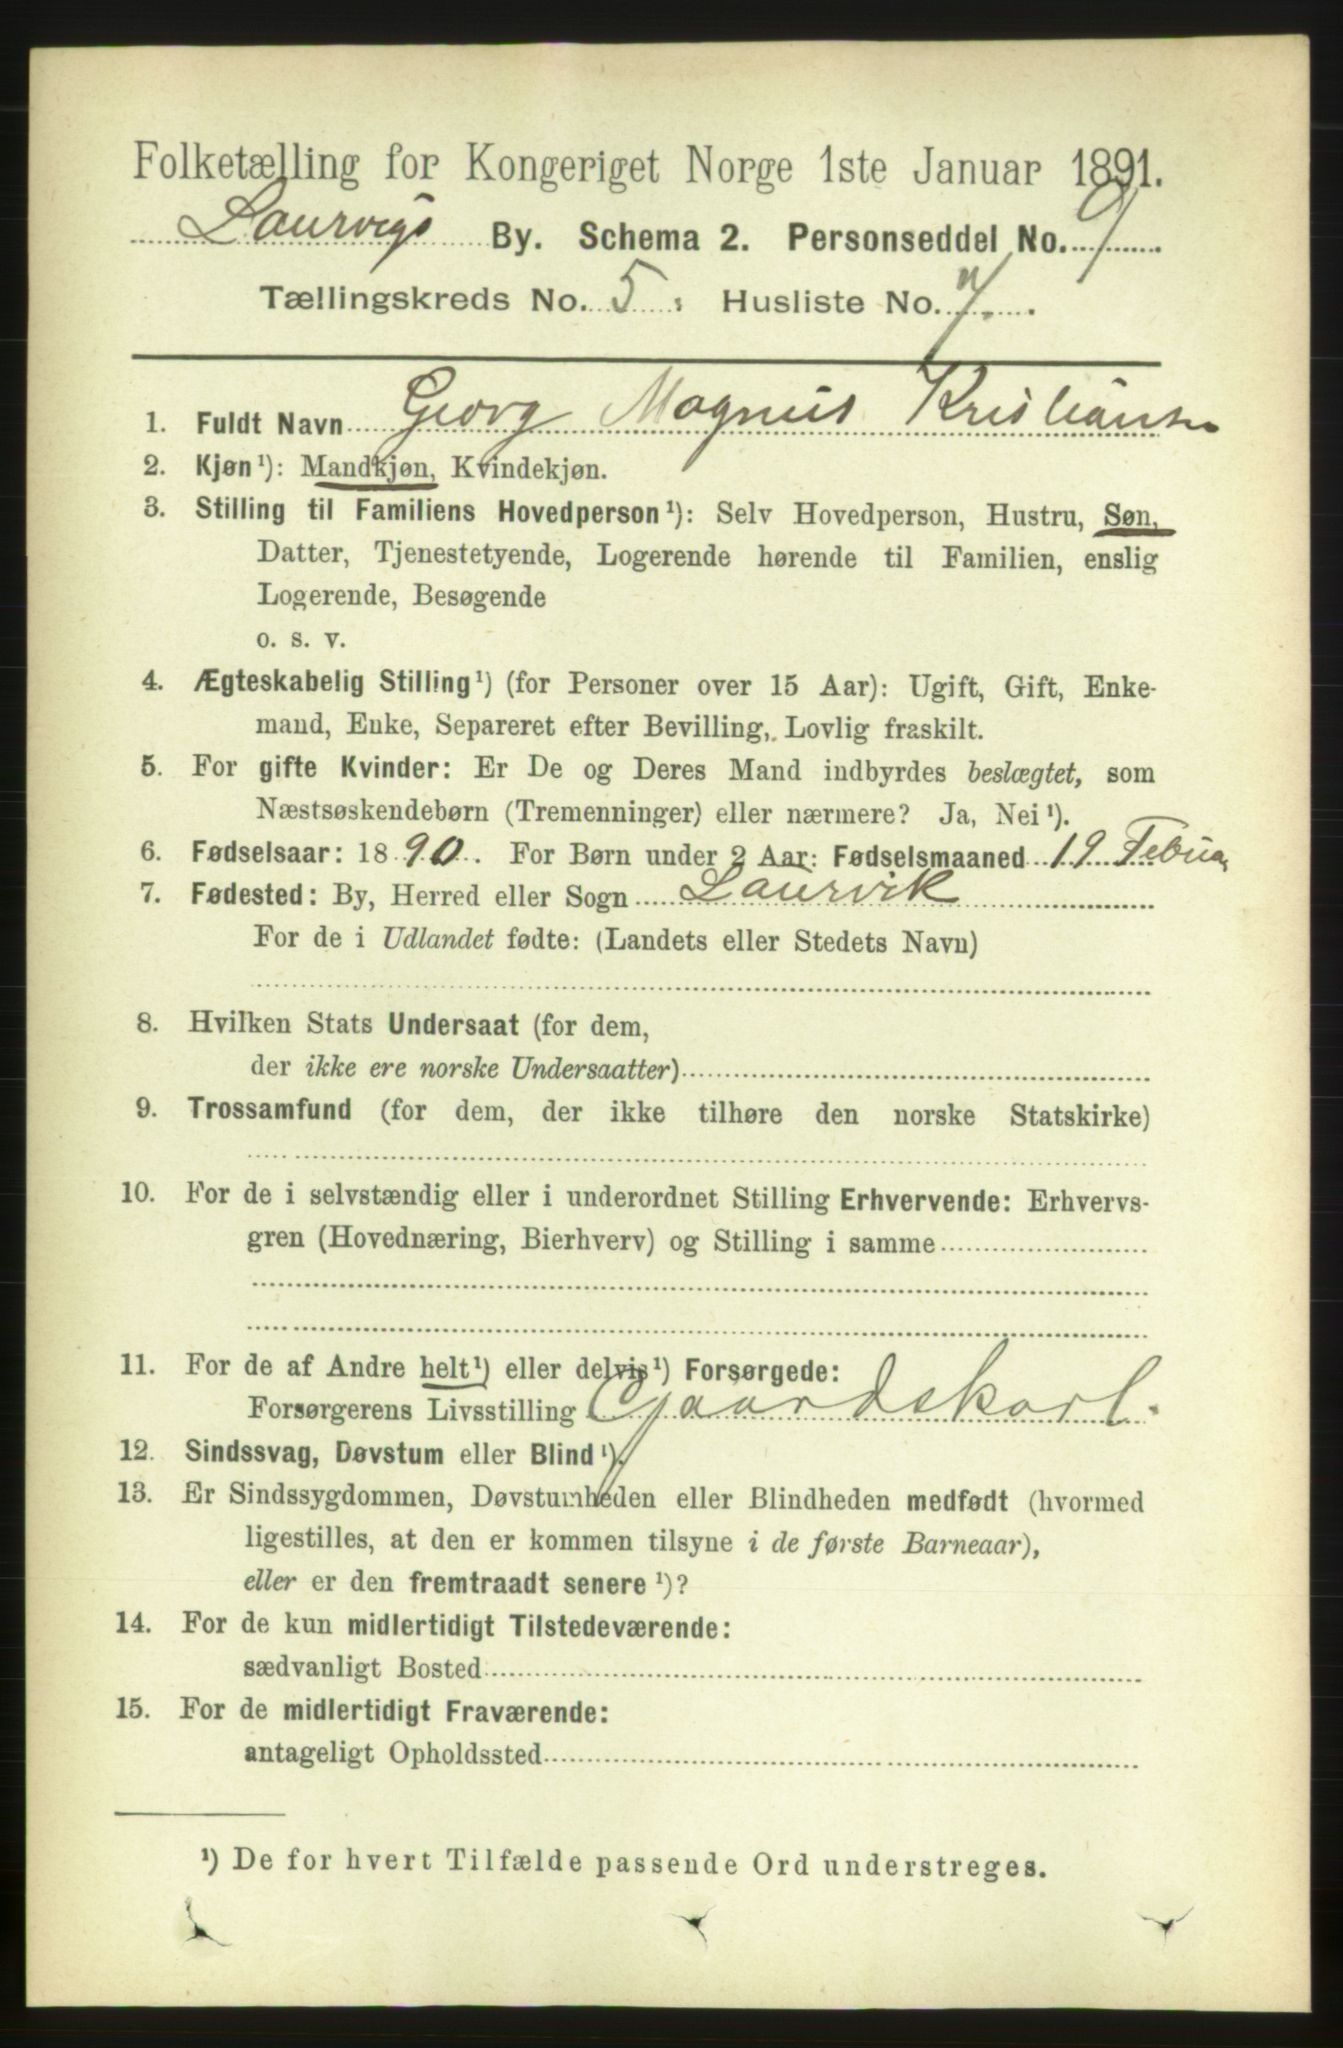 Folketælling for Kongeriget Norge 1ste Januar 1891.
Laurvigs By. Schema 2. Personseddel No. 9
Tællingskreds No. 5. Husliste No. 7.
1. Fuldt Navn Georg Magnus Kristiansen
2. Kjøn¹): Mandkjøn, Kvindekjøn.
3. Stilling til Familiens Hovedperson¹): Selv Hovedperson, Hustru, Søn,
Datter, Tjenestetyende, Logerende hørende til Familien, enslig
Logerende, Besøgende
o. s. v.
4. Ægteskabelig Stilling¹) (for Personer over 15 Aar): Ugift, Gift, Enke-
mand, Enke, Separeret efter Bevilling, Lovlig fraskilt.
5. For gifte Kvinder: Er De og Deres Mand indbyrdes beslægtet, som
Næstsøskendebørn (Tremenninger) eller nærmere? Ja, Nei¹).
6. Fødselsaar: 1890. For Børn under 2 Aar: Fødselsmaaned 19 Februa
7. Fødested: By, Herred eller Sogn Laurvik
For de i Udlandet fødte: (Landets eller Stedets Navn)
8. Hvilken Stats Undersaat (for dem,
der ikke ere norske Undersaatter)
9. Trossamfund (for dem, der ikke tilhøre den norske Statskirke)
10. For de i selvstændig eller i underordnet Stilling Erhvervende: Erhvervs-
gren (Hovednæring, Bierhverv) og Stilling i samme
11. For de af Andre helt¹) eller delvis¹) Forsørgede:
Forsørgerens Livsstilling Gaardskarl.
12. Sindssvag, Døvstum eller Blind¹).
13. Er Sindssygdommen, Døvstumheden eller Blindheden medfødt (hvormed
ligestilles, at den er kommen tilsyne i de første Barneaar),
eller er den fremtraadt senere¹)?
14. For de kun midlertidigt Tilstedeværende:
sædvanligt Bosted
15. For de midlertidigt Fraværende:
antageligt Opholdssted
¹) De for hvert Tilfælde passende Ord understreges.